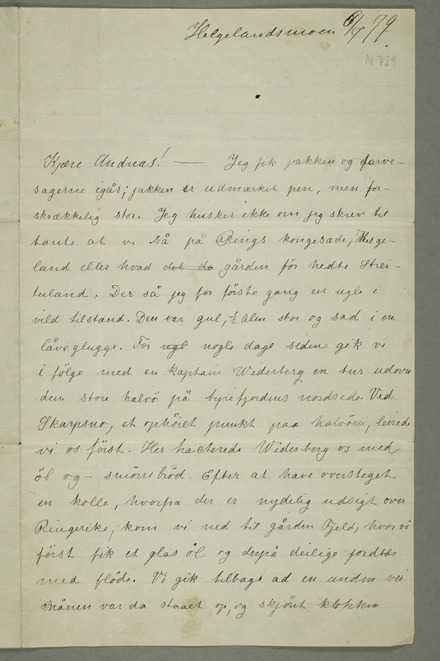 Helgelandsmoen 6/7 79.
N 724
Kjære Andreas! — Jeg fik jakken og farve-
sagerne igår; jakken er udmærket pen, men for-
skrækkelig stor. Jeg husker ikke om jeg skrev til
tante at vi så på Rings kongesæde, Helge-
land eller hvad det da gården før hedte
. Der så jeg for første gang en ugle i
vild tilstand. Den var gul, ½ alen stor og sad i en
låveglugge. For nogle dage siden gik vi
i følge med en kaptain Widerberg en tur udover
den store halvø på Tyrifjordens nordside. Ved
Skarpsno, et ophöiet punkt paa halvöen, leired
vi os först. Her Widerberg os med
öl og – smörrebröd Efter at have oversteget
en kolle, hvorfra der er nydelig udsigt over
Ringerike, kom vi ned til gården Fjeld, hvor vi
först fik et glas öl og derpå deilige jordbær
med flöde. Vi gik tilbage ad en anden vei
månen var da staaet op, og skjönt klokken